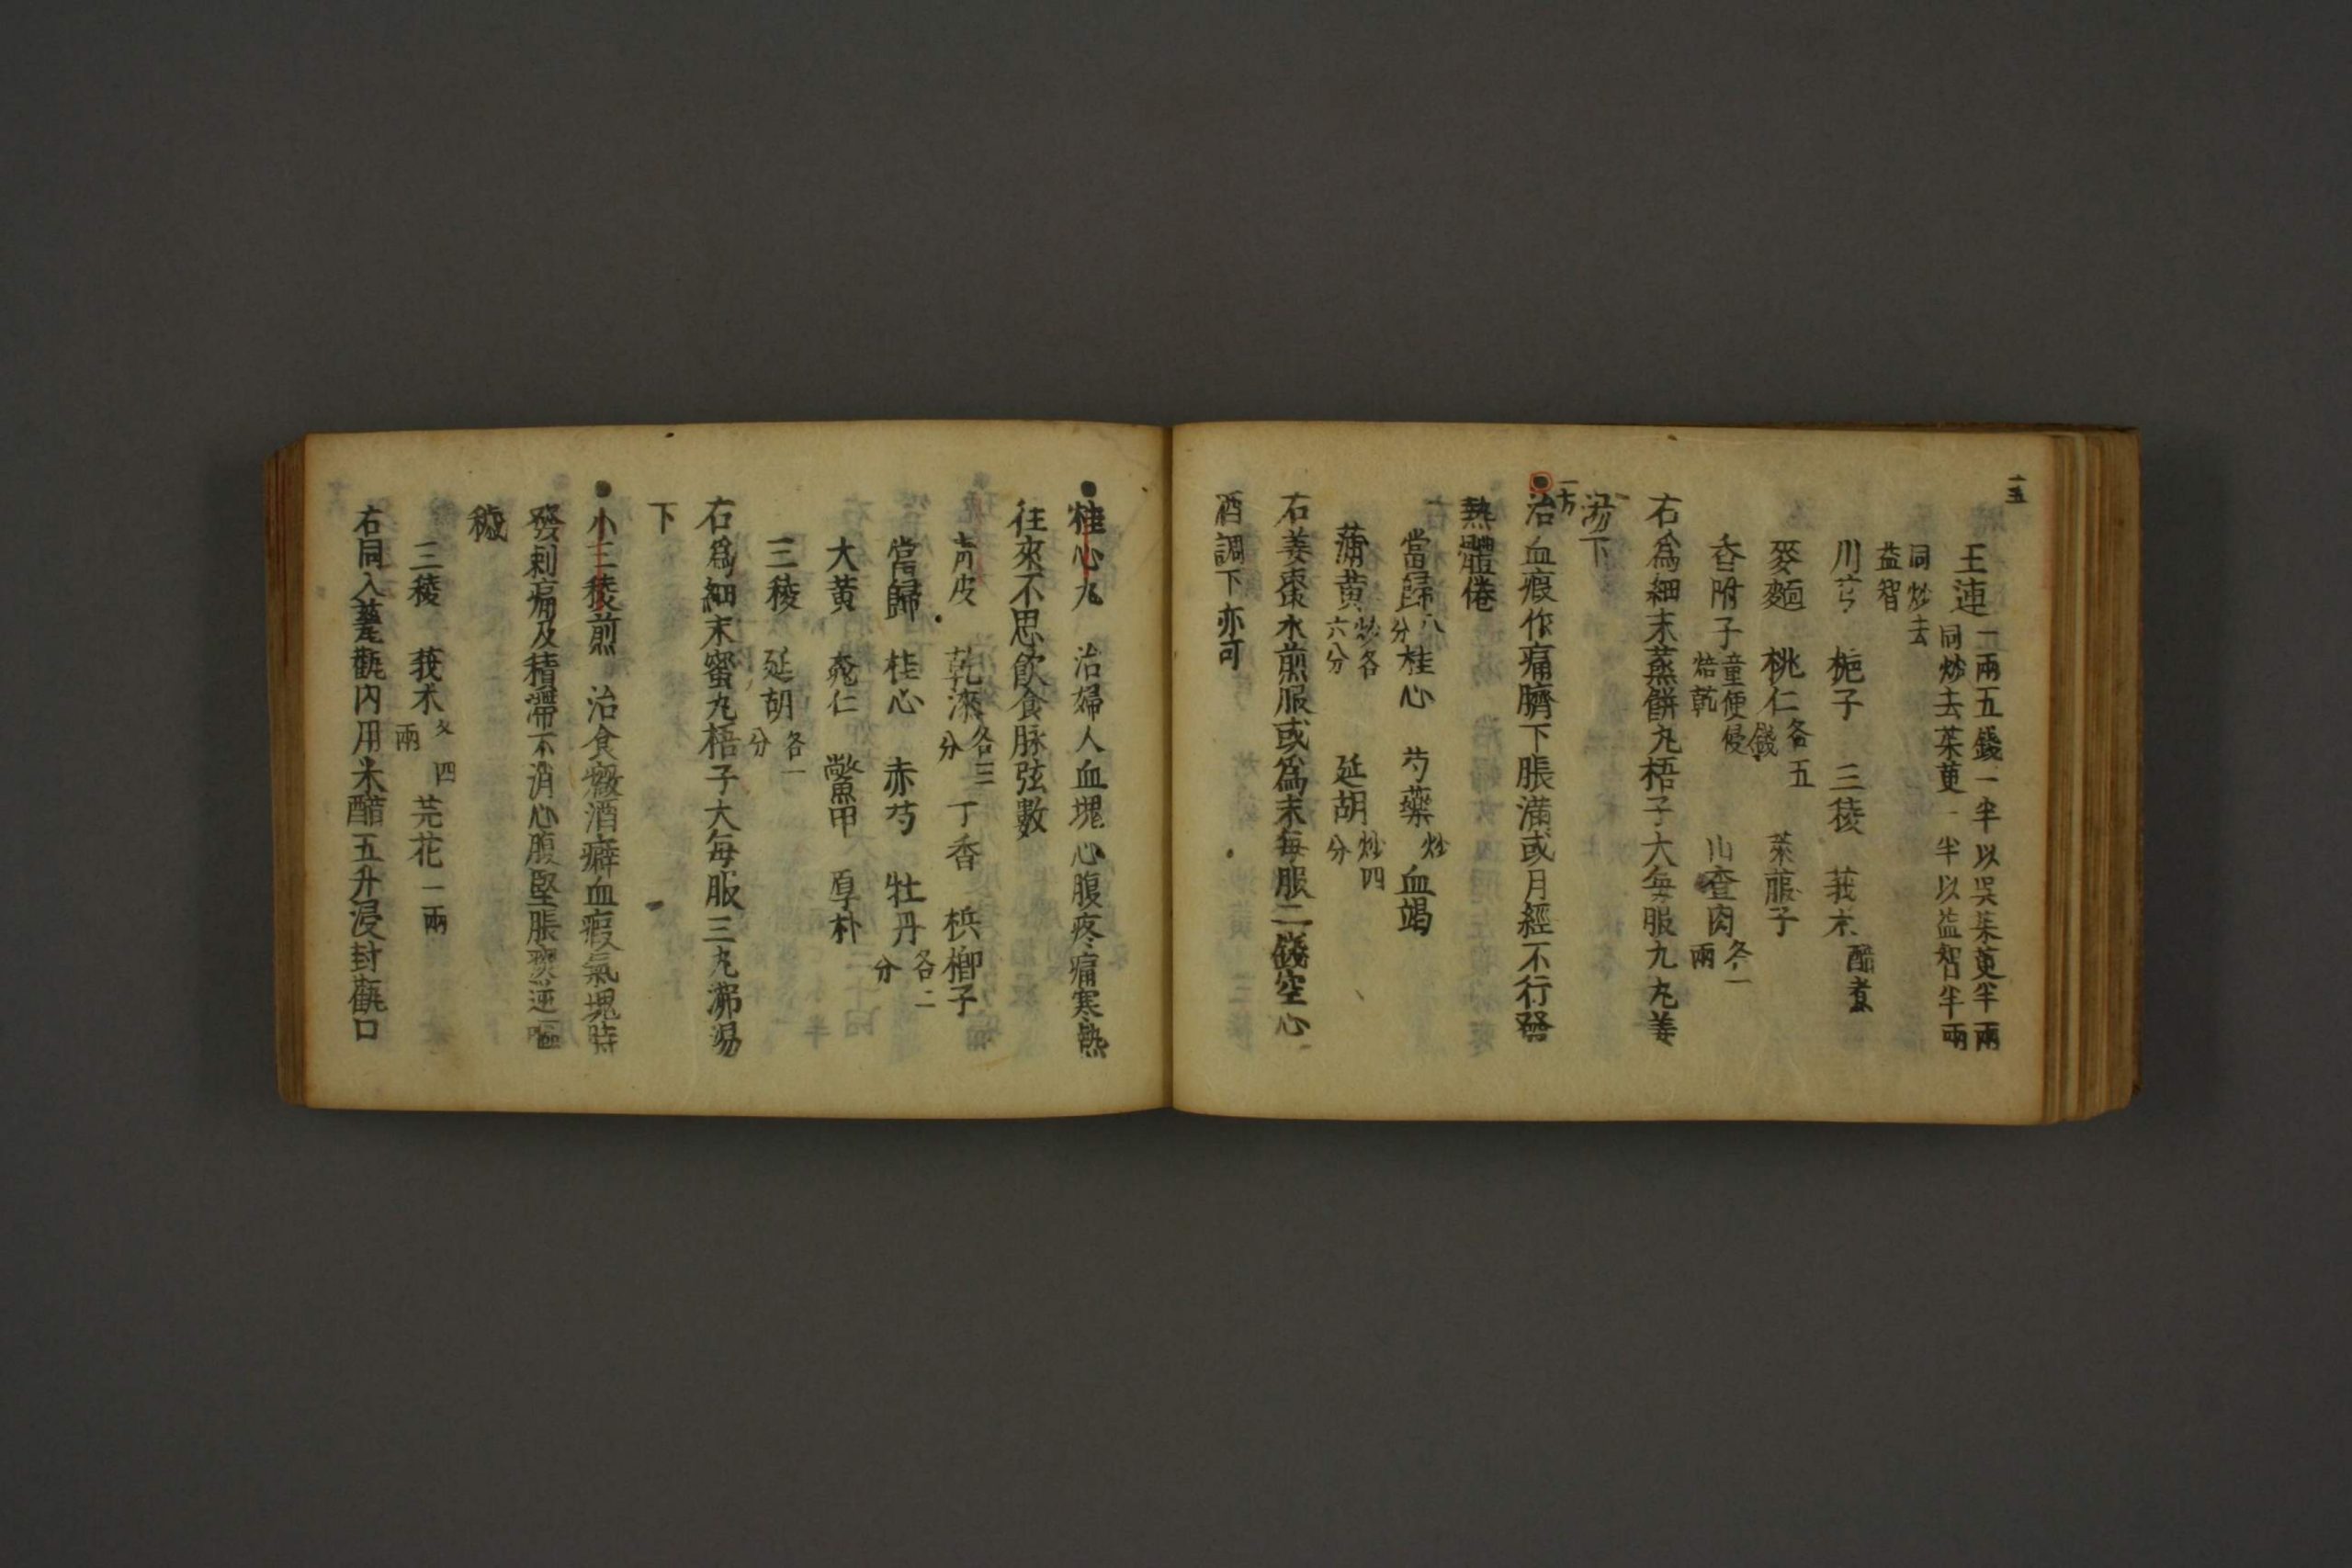 十五
王連一兩五錢一半以吳茱萸半兩
同炒去茱萸一半以益智半兩
同炒去
益智
川芎 梔子 三稜 莪朮醋煮
麥麯 桃仁各五錢 萊菔子
香附子童便侵焙乾 山査肉各一兩
右爲細末蒸餅丸梧子大每服九丸姜
湯下
一方
治血瘕作痛臍下脹滿或月經不行發
熱體倦
當歸八分 桂心 芍藥炒 血竭
蒲黄炒各六分 延胡炒四分
右姜棗水煎服或爲末每服二錢空心
酒調下亦可
桂心丸 治婦人血塊心腹疼痛寒熱
往來不思飲食脉弦數
青皮 乾漆各三分 丁香 梹榔子
當歸 桂心 赤芍 牡丹各二分
大黄 桃仁 鱉甲 厚朴
三稜 延胡各一分
右爲細末蜜丸梧子大每服三丸沸湯
下
小三稜煎 治食癥酒癖血瘕氣塊時
發刺痛及積滯不消心腹堅脹痰逆嘔
穢
三稜 莪朮各四兩 芫花一兩
右同入瓷罐内用米醋五升浸封罐口